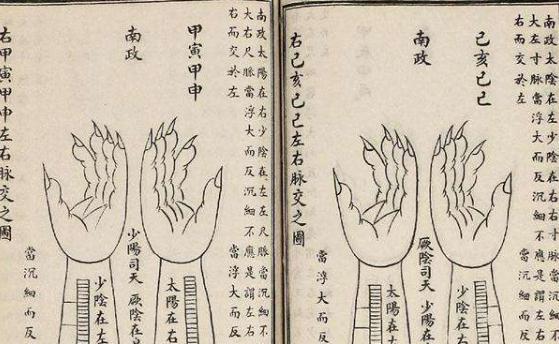 南政太陽在左少陰在右右寸脈當沉細
大左寸脈當浮大而反沉細不應是謂左右
右而交於左
己亥己巳
當沉細而反
少陰在右
南政
厥陰司天 少陽在
太陽在左
當浮大而反
右己亥己巳左右脈交之圖
南政太陽在右少陰在左左尺脈當沉細不
大右尺脈當浮大而反沉細不應是謂左右
右而交於左
甲寅甲申
當浮大而反
太陽在右
南政
少陽司天 厥陰在
少陰在左
當沉細而反
右甲寅甲申左右脈交之圖